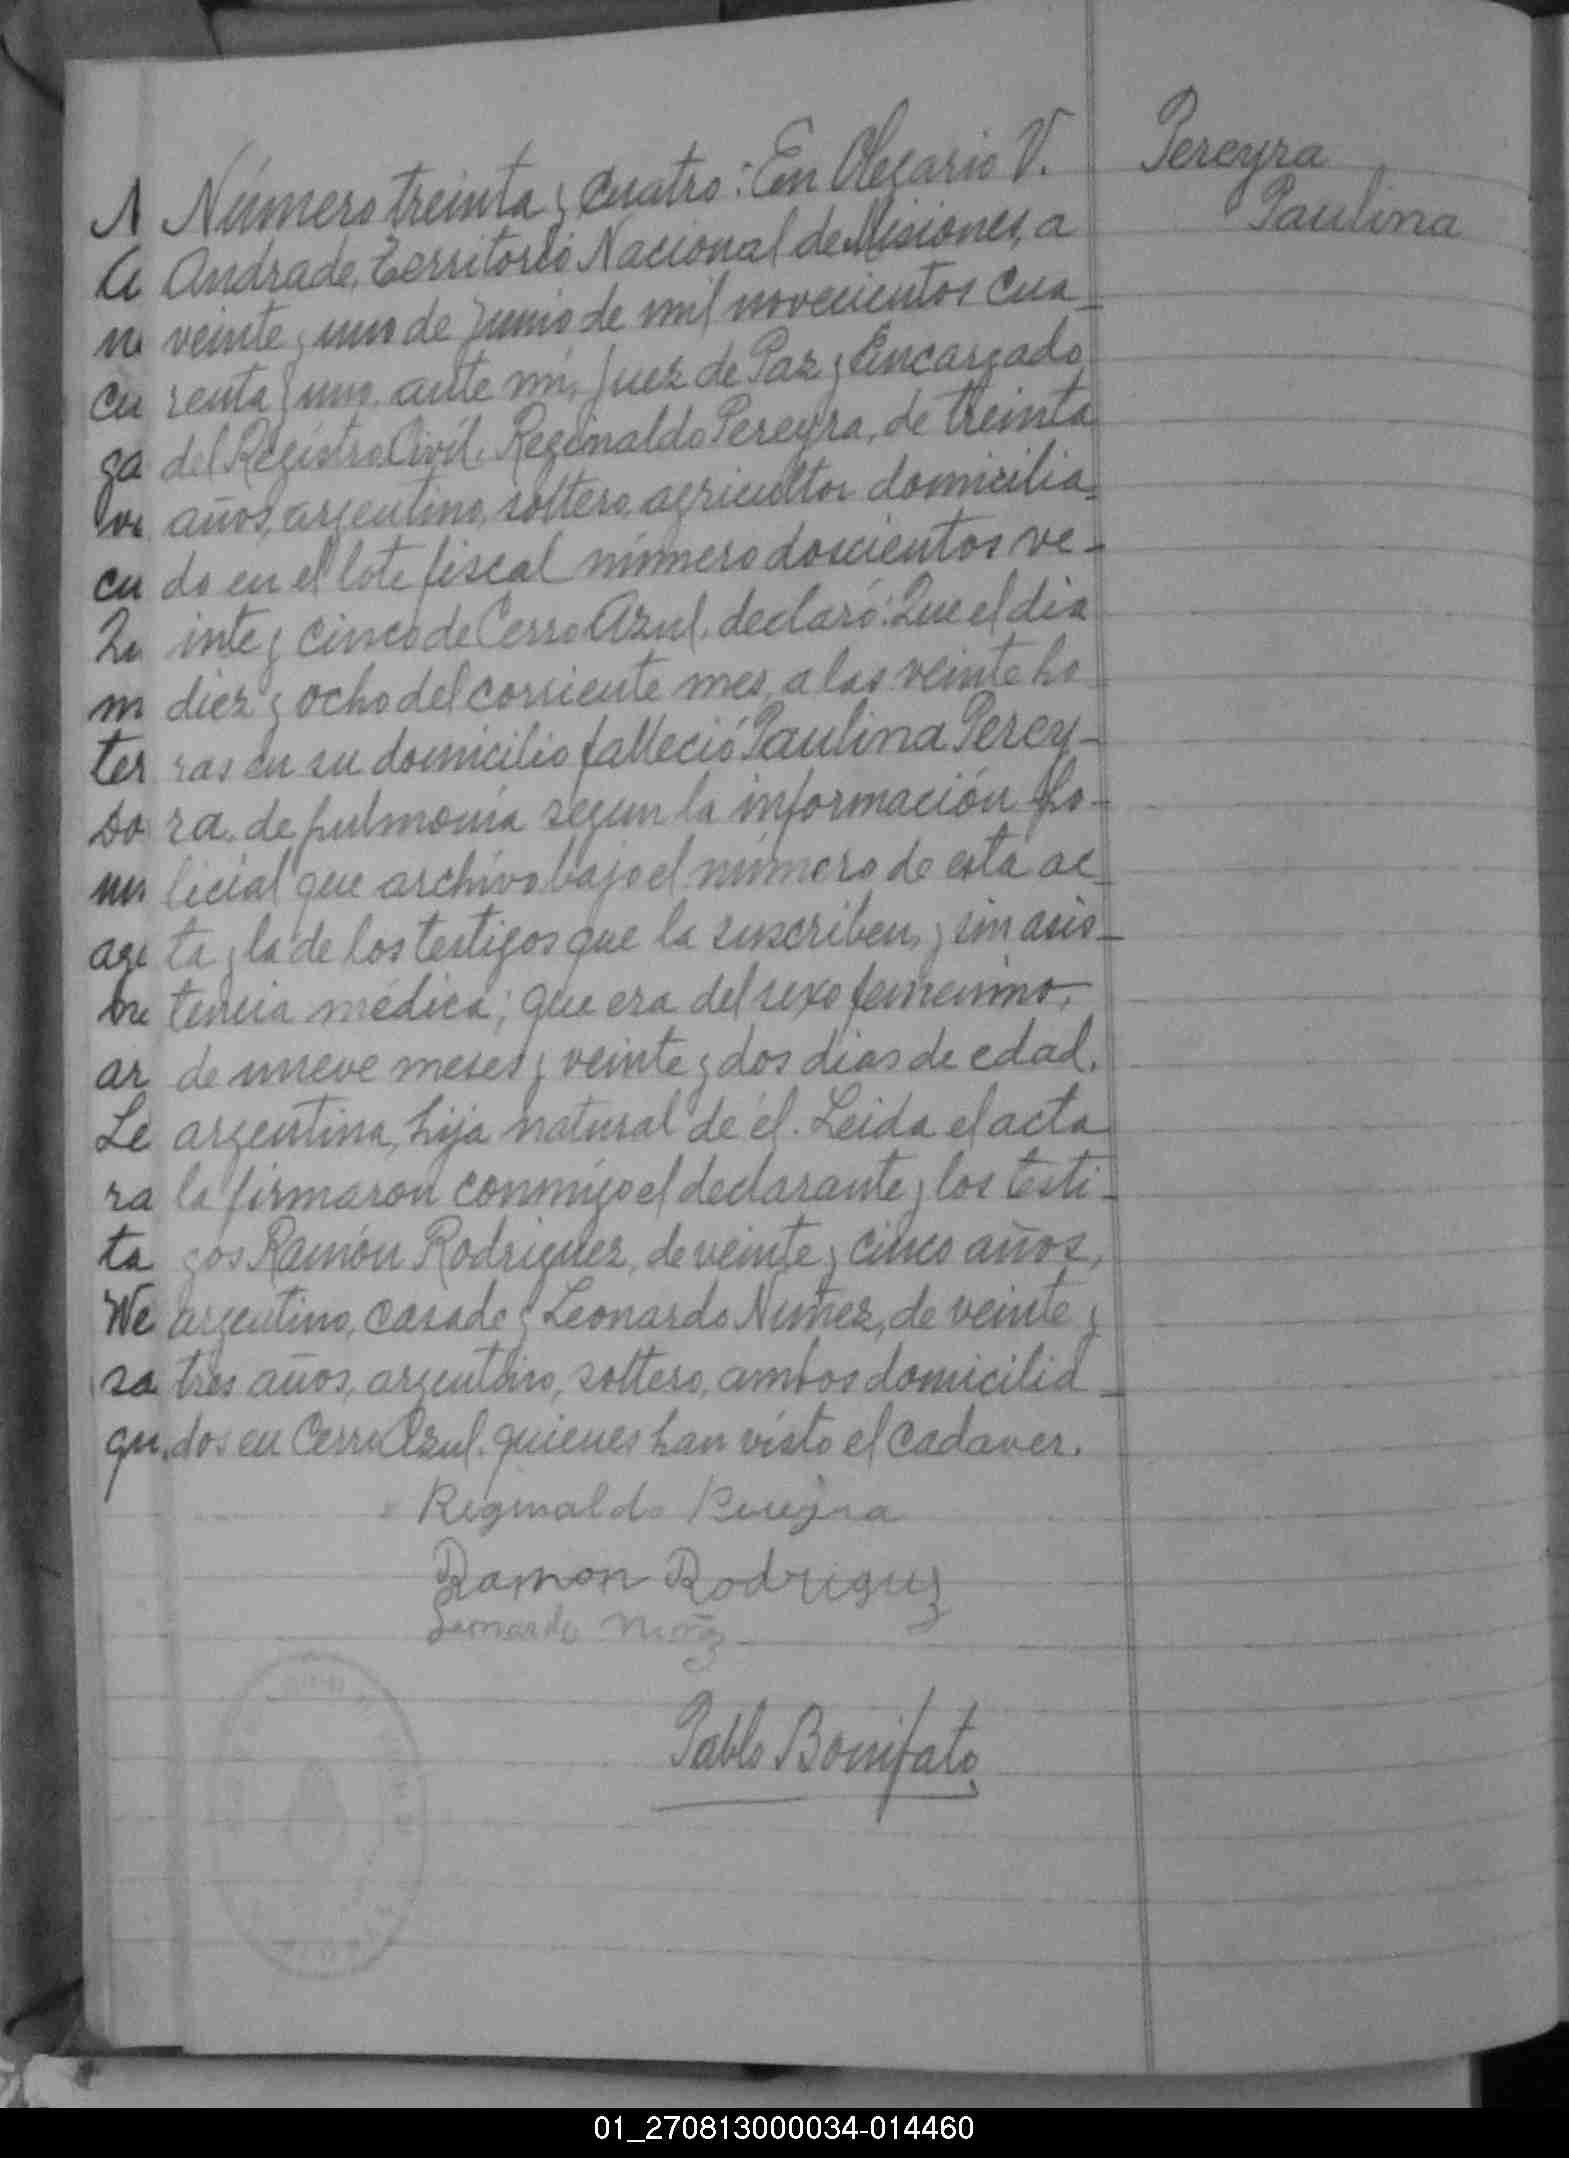 Pereyra
Paulina
Número treinta y cuatro: En Olegario V.
Andrade, Territorio Nacional de Misiones, a
veinte y uno de Junio de mil novecientos cua-
renta y uno, ante mí, Juez de Paz y Encargado
del Registro Civil, Reginaldo Pereyra, de treinta
años, argentino, soltero, agricultor domicilia-
do en el lote fiscal número doscientos ve-
inte y cinco de Cerro Azul, declaró: Que el dia
diez y ocho del corriente mes, a las veinte ho
ras en su domicilio falleció Paulina Perey-
ra, de pulmonía segun la información po-
licial que archivo bajo el número de esta ac-
ta y la de los testigos que la suscriben, y sin asis-
tencia médica; que era del sexo femenino,
de nueve meses y veinte y dos dias de edad,
argentina, hija natural de él. Leida el acta
la firmaron conmigo el declarante y los testi-
gos Ramón Rodriguez, de veinte y cinco años,
argentino, casado y Leonardo Nuñez, de veinte y
tres años, argentino, soltero, ambos domicilia-
dos en Cerro Azul, quienes han visto el cadaver.
Reginaldo Pereyra
Ramon Rodriguez
Leonardo Nuñez
Pablo Bonifato
01_270813000034-014460